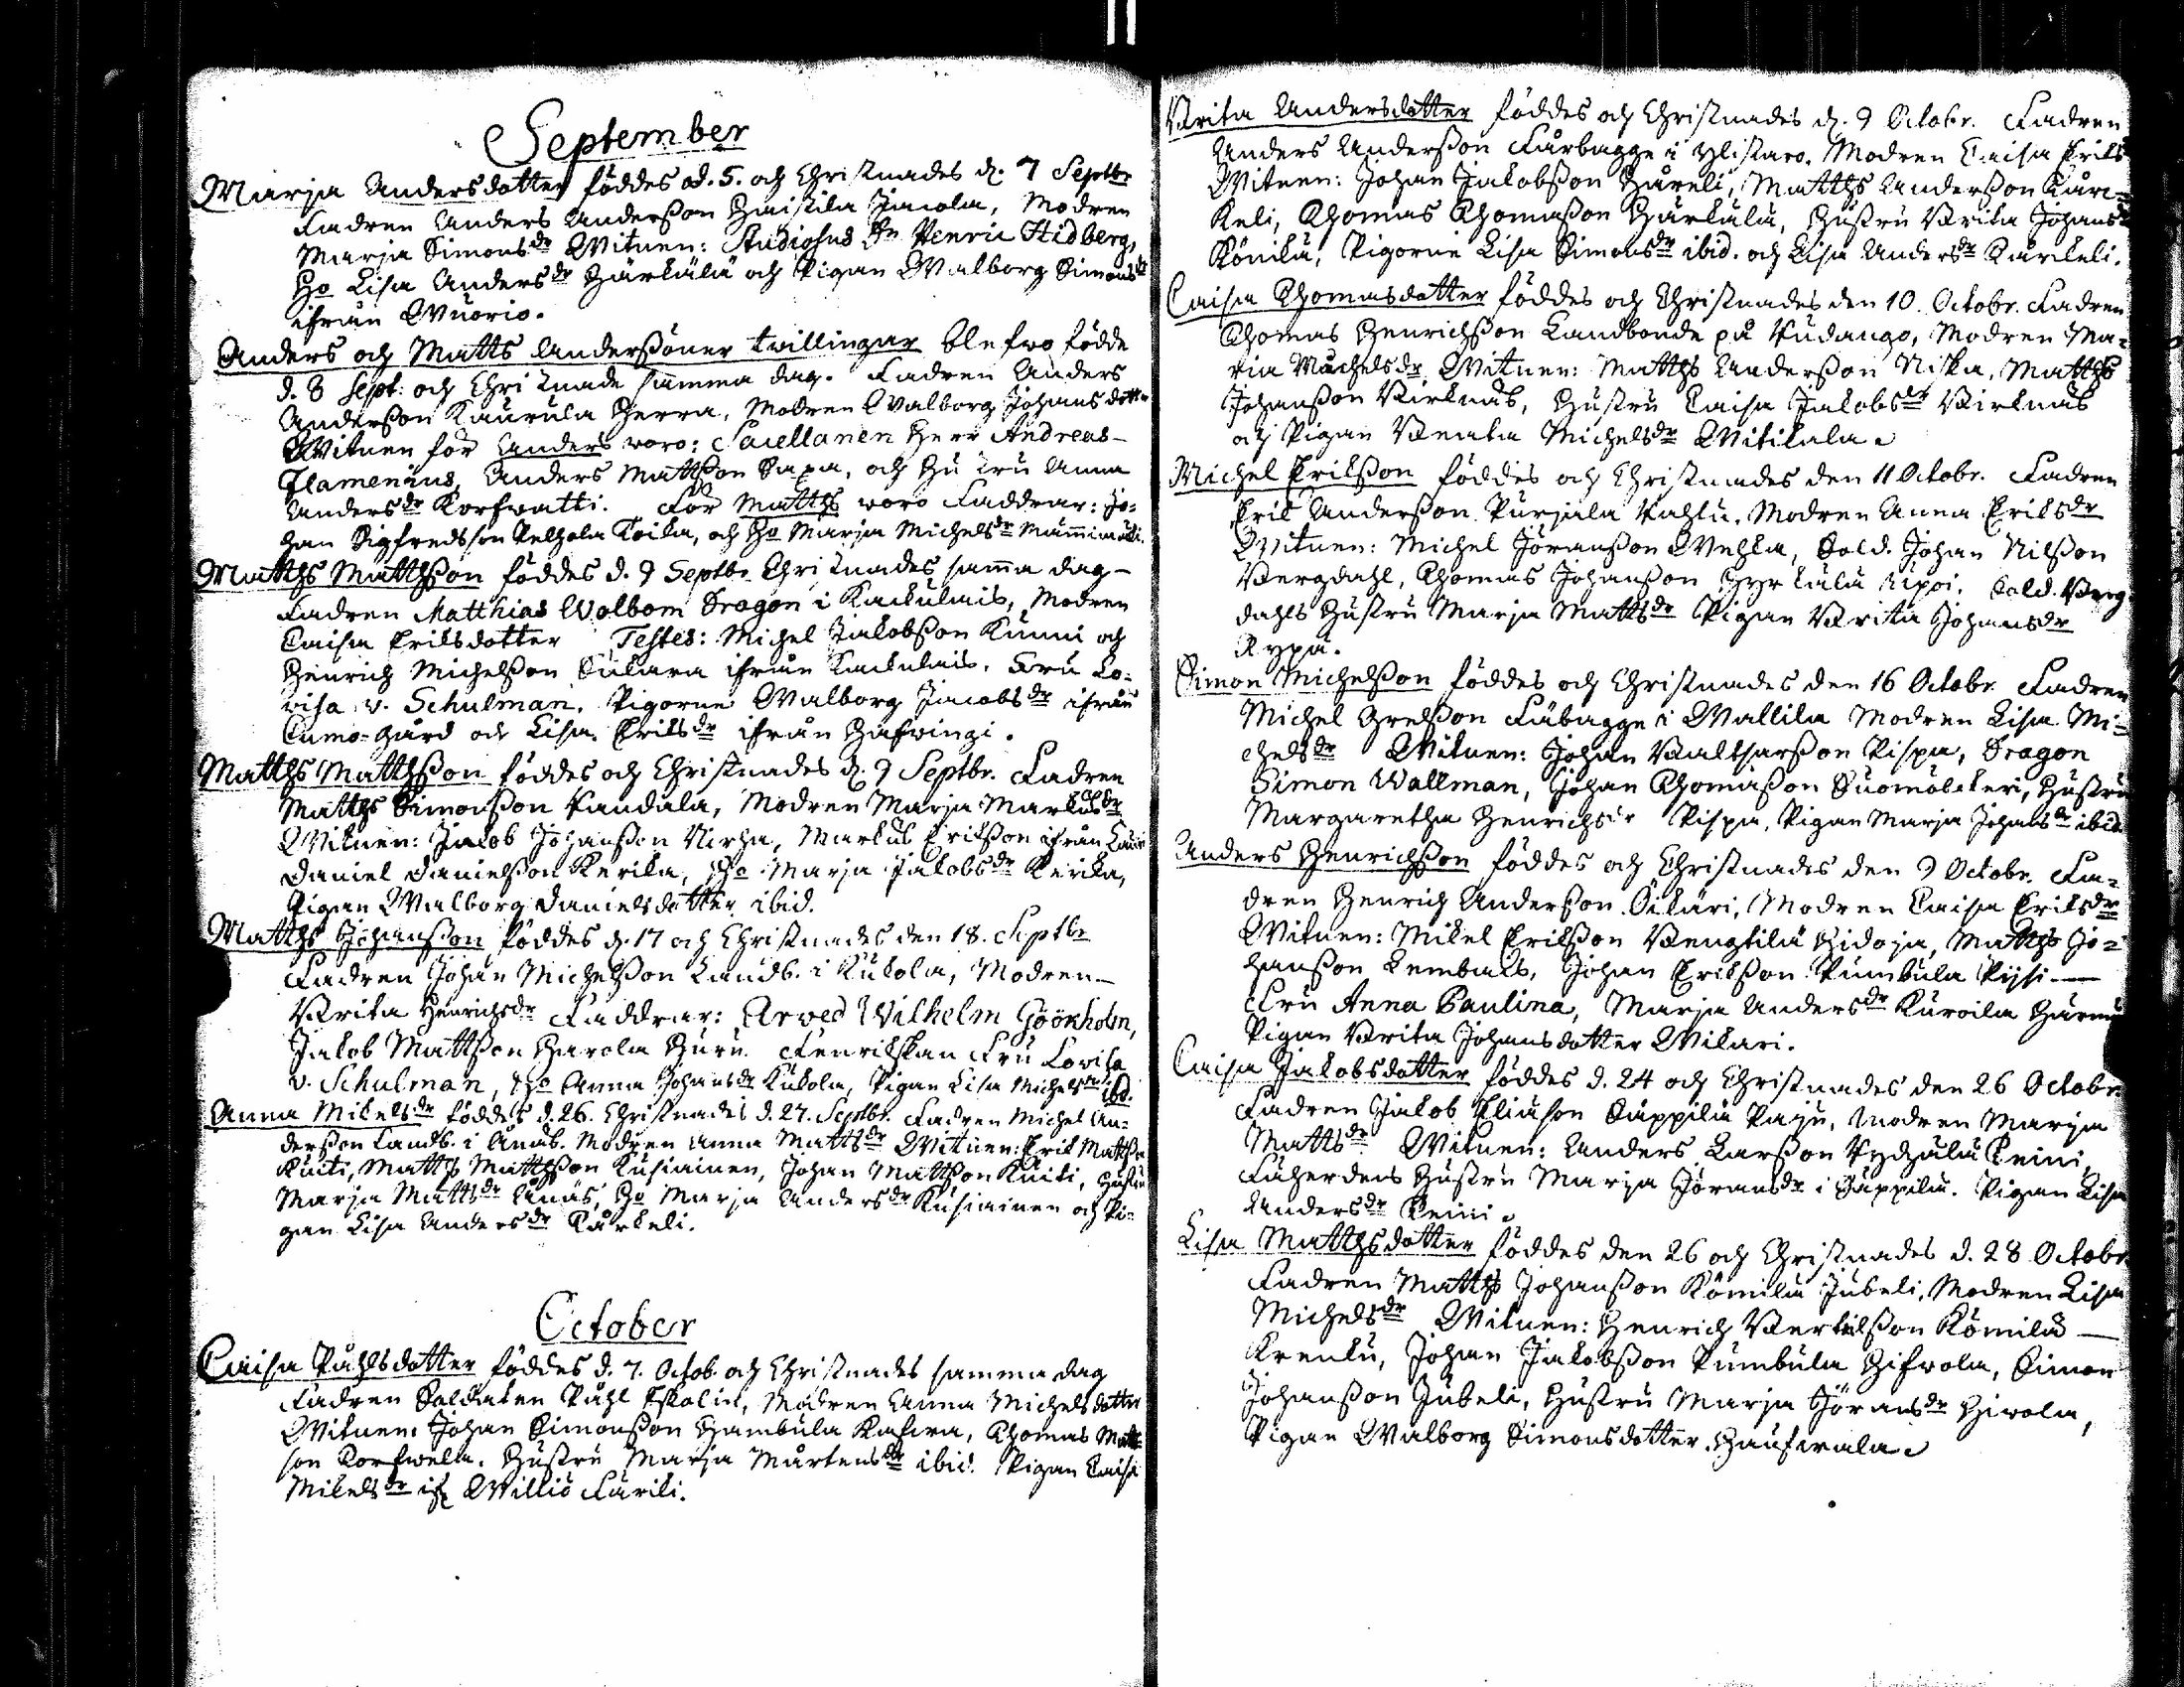 September
Marja Andersdotter föddes d. 5. och Christnades d. 7 Septbr
Fadren Anders Anderßon Haistila Jacola, Modren
Marja Simonsdr Witnen: Studiosus Hr Henric Hidberg,
Ho Lisa Andersdr Härkälä och Pigan Walborg Simonsdr
ifrån Wuorio.
Anders och Matts Anderßöner twillingar blefwo födde
d. 8 Sept: och Christnade samma dag. Fadren Anders
Anderßon Kaurula Herra, Modren Walborg Johansdottr
Witnen för Anders woro: Sacellanen Herr Andreas
Flamenius, Anders Matthßon Papa, och Hustru Anna
Andersdr Korfwatti. För Matths woro Faddrar: Jo=
han Sigfredsson Koika, och Ho Marja Michelsdr
Matths Matthßon föddes d. 9 Septbr Christnades samma dag
Fadren Matthias Wolbom Dragon i Kackulais, Modren
Caisa Eriksdotter Testes: Michel Jakobßon Kunni och
Henrich Michelßon ifrån Kackulais. Fru Lo=
visa v. Schulman, Pigorne Walborg Jacobsdr ifrån
Cumo=gård och Lisa Eriksdr ifrån Hafwingi.
Matths Matthßon föddes och Christnades d. 9 Septbr. Fadren
Matths Simonßon Vandala, Modren Marja Markusdr
Witnen: Jakob Johanßon Markus Erikßon ifrån
Daniel Danielßon Kerika, Ho Marja Jakobsdr Kerika,
Pigan Walborg Danielsdotter ibid.
Matths Johanßon föddes d. 17 och Christnades den 18. Septbr
Fadren Johan Michelßon Landb. i Kukola, Modren
Brita Henrichsdr Faddrar: Arved Wilhelm Göökholm,
Jakob Matthßon Harola Huru. Fenrikskan Fru Lovisa
v. Schulman, Ho Anna Johansdr Kukola, Pigan Lisa Michelsdr ibd.
Anna Mikelsdr föddes d. 26. Christnades d. 27. Septbr. Fadren Michel An=
derßon Landb. i Anäs. Modren Anna Mattsdr Witnen: Erik Mattßon
Knuti, Matths Matthßon Kusiainen, Johan Matthßon Knuti, Hustru
Marja Mattsdr Anäs, Ho Marja Andersdr Kusiainen och Pi=
gan Lisa Andersdr Kärkeli.
October
Caisa Påhlsdotter föddes d. 7. Octob. och Christnades samma dag
Fadren Soldaten Påhl Eskolin, Modren Anna Michelsdotter
Witnen: Johan Simonßon Hambula Thomas Matt=
son Korfwela. Hustru Marja Mårtensdr ibid. Pigan Caisa
Mikelsdr if Williö Färiki.
Brita Andersdotter föddes och Christnades d. 9 Octobr. Fadren
Anders Anderßon Fårbagge i Ylistaro. Modren Caisa Eriks
Witnen: Johan Jakobßon Matths Anderßon Kär=
keli, Thomas Thomaßon Härkälä, Hustru Brita Johansdr
Pigorne Lisa Simonsdr ibid. och Lisa Andersdr Kärkeli.
Caisa Thomasdotter föddes och Christnades den 10. Octobr. Fadren
Thomas Henrichßon Landbonde på Modren Ma=
ria Michelsdr, Witnen: Matths Anderßon Niska, Matths
Johanßon Birknäs, Hustru Caisa Jakobsdr Birknäs
och Pigan Beata Michelsdr Witikala.
Michel Erikßon föddes och Christnades den 11 Octobr. Fadren
Erik Anderßon Purjala Pahlu, Modren Anna Eriksdr
Witnen: Michel Jöranßon Wehka, Sold. Johan Nilßon
Bergdahl, Thomas Johanßon Hyrkälä Sold. Berg=
dahls Hustru Marja Mattsdr Pigan Brita Johansdr
Rypä.
Simon Michelßon föddes och Christnades den 16 Octobr. Fadren
Michel Grelßon Fäbagge i Wallila Modren Lisa Mi=
chelsdr Witnen: Johan Balthsarßon Pispa, Dragon
Simon Wallman, Johan Thomaßon Hustru
Margaretha Henrichsdr Pispa, Pigan Marja Johansdr ibid.
Anders Henrichßon föddes och Christnades den 9 Octobr. Fa=
dren Henrich Anderßon Modren Caisa Eriksdr
Witnen: Mikel Erikßon Bengtilä Hidoja, Matths Jo=
hanßon Lembals, Johan Erikßon Pumbula Pijsi
Fru Anna Paulina, Marja Andersdr Kuroila
Pigan Brita Johansdotter Wikari.
Caisa Jakobsdotter föddes d. 24 och Christnades den 26 Octobr.
Fadren Jakob Eliaßon Säppilä Paju, Modren Marja
Mattsdr Witnen: Anders Larßon Pydhälä Keini,
Fäherdens Hustru Marja Jöransdr i Säppilä. Pigan Lisa
Andersdr Keini.
Lisa Matthsdotter föddes den 26 och Christnades d. 28 Octobr
Fadren Matths Johanßon Kömilä Jubeli, Modren Lisa
Michelsdr Witnen: Henrich Bertilßon Kömilä
Krenku, Johan Jakobßon Pumbula Hifwola, Simon
Johanßon Jubeli, Hustru Marja Jöransdr Hiwola,
Pigan Walborg Simonsdotter.